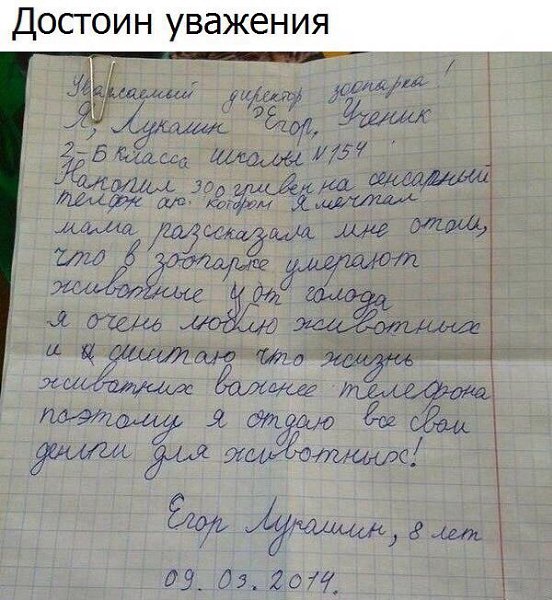 Достоин уважения
Уважаемый директор зоопарка!
Я, Лукашин Егор, Ученик
2-Б класса школы №154
Накопил 300 гривен на сенсарный
телефон аю котором я мечтал
мама разссказала мне отом,
что в зоопарке умерают
животные у от голода
я очень люблю животных
и считаю что жизнь
животних важнее телефона
поэтому я отдаю все свои
деньги для животных!
Егор Лукашин, 8 лет
09. 03. 2014.